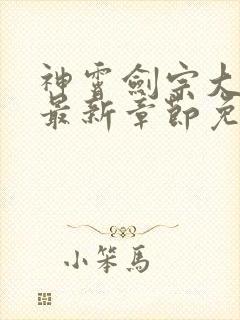 神霄劍宗大
最新章節免
小笨馬